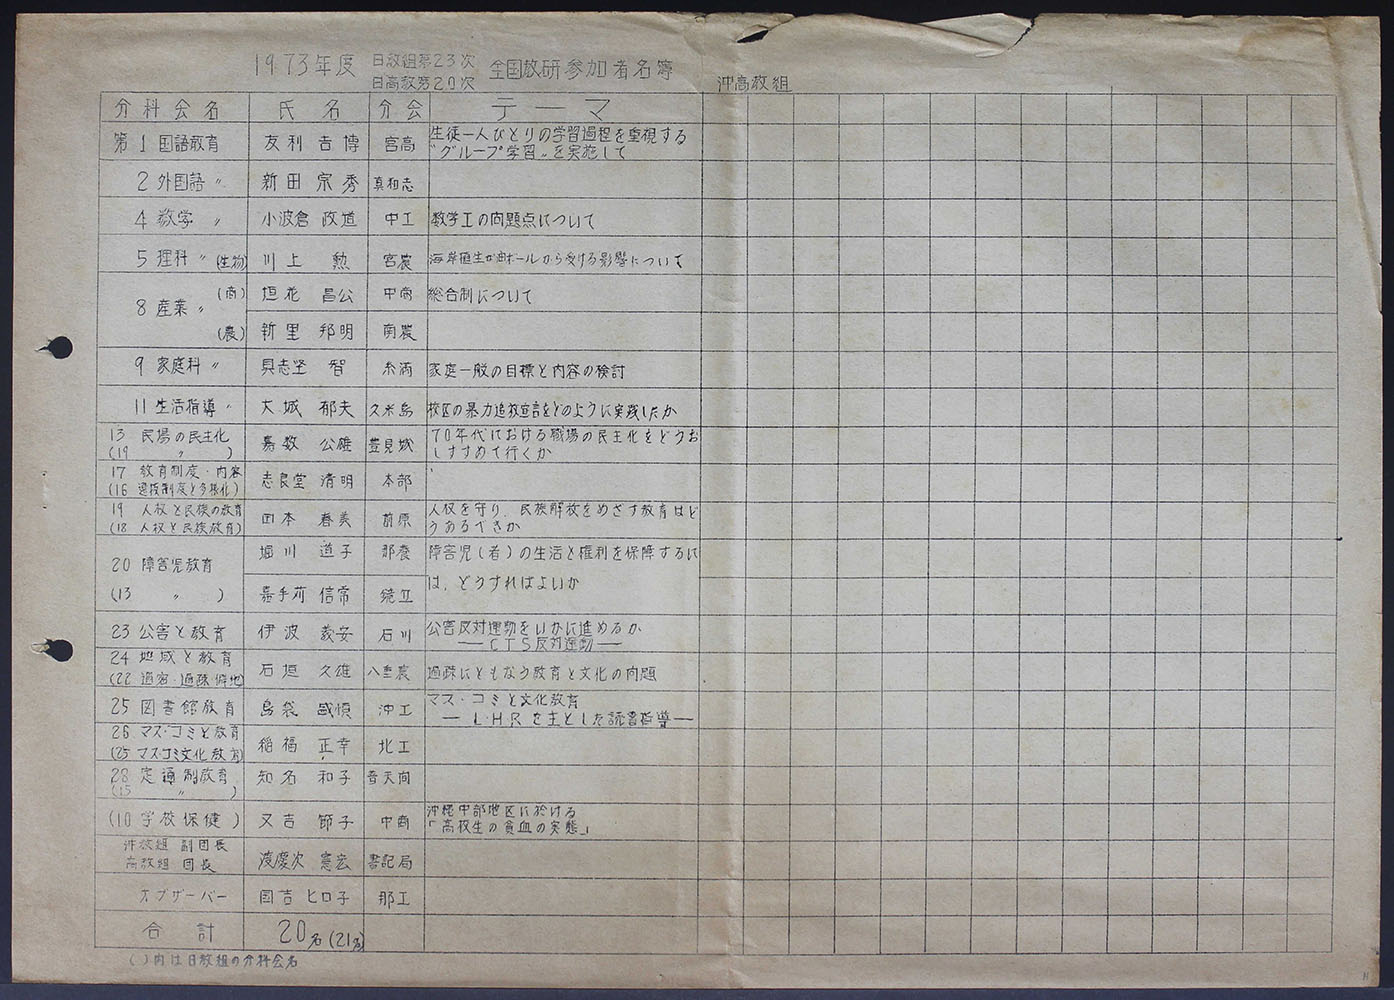 1973年度 日教組第23次 全国教研参加者名簿
日高教第20次
沖高教組
分科会名 氏名 分会 テーマ
第1国語教育 友利吉博 宮高 生徒一人ひとりの学習過程を重視する
"グループ学習〃を実施して
2 外国語 〃 新田宗秀 真和志
4 数学 〃 小波倉政道 中工 数学Ⅰの問題点について
5 理科 〃(生物) 川上 勲 宮農 海岸植生が油ボールから受ける影響について
8 産業 〃 (商) 垣花昌公 中商 総合制について
(農) 新里邦明 南農
9 家庭科 〃 具志堅 智 糸満 家庭一般の目標と内容の検討
11 生活指導 〃 大城郁夫 久米島 校区の暴力追放宣言をどのように実践したか
13 民場の民主化 嘉数公雄 豊見城 70年代における職場の民主化をどうお
(19 〃 ) しすすめて行くか
17 教育制度・内容 志良堂清明 本部
(16 選抜制度と多様化)
19 人权と民族の教育 田本春美 前原 人权を守り、民族解放をめざす教育はど
(18 人权と民族教育) うあるべきか
20 障害児教育 堀川道子 那養 障害児(者)の生活と権利を保障するに
(13 〃 ) 嘉手苅信常 鏡丘 は、どうすればよいか
23 公害と教育 伊波義安 石川 公害反対運動をいかに進めるか
—CTS反対運動—
24 地域と教育 石垣久雄 八重農 過疎にともなう教育と文化の問題
(22 過密・過疎 僻地)
25 図書館教育 島袋盛慎 沖工 マス・コミと文化教育
— L・H・Rを主とした読書指導—
26 マス・コミと教育 稲福正幸 北工
(25 マス・コミ文化教育)
28 定通制教育 知名和子 普天間
(15 〃 )
(10 学校保健 ) 又吉節子 中商 沖縄中部地区に於ける
「高校生の貧血の実態」
沖教組 副団長 渡慶次憲宏 書記局
高教組 団長
オブザーバー 国吉ヒロ子 那工
合計 20名(21名)
( )内は日教組の分科会名
11